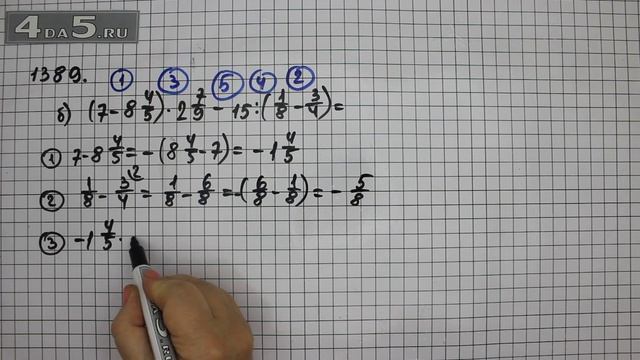 4DA5.RU
1389. ① ③ ⑤ ④ ②
б) (7 - 8 4/5) · 2 7/9 - 15 : (1/8 - 3/4) =
① 7 - 8 4/5 = -(8 4/5 - 7) = -1 4/5
② 1/8 - 3/4 \2 = 1/8 - 6/8 = -(6/8 - 1/8) = - 5/8
③ -1 4/5 ·